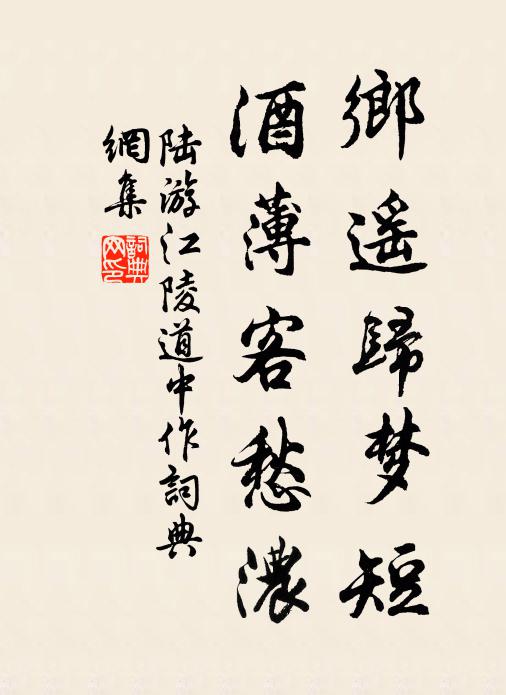 鄉遥歸梦短
酒薄客愁濃
陆游江陵道中作詞典
網集
詞典
网印